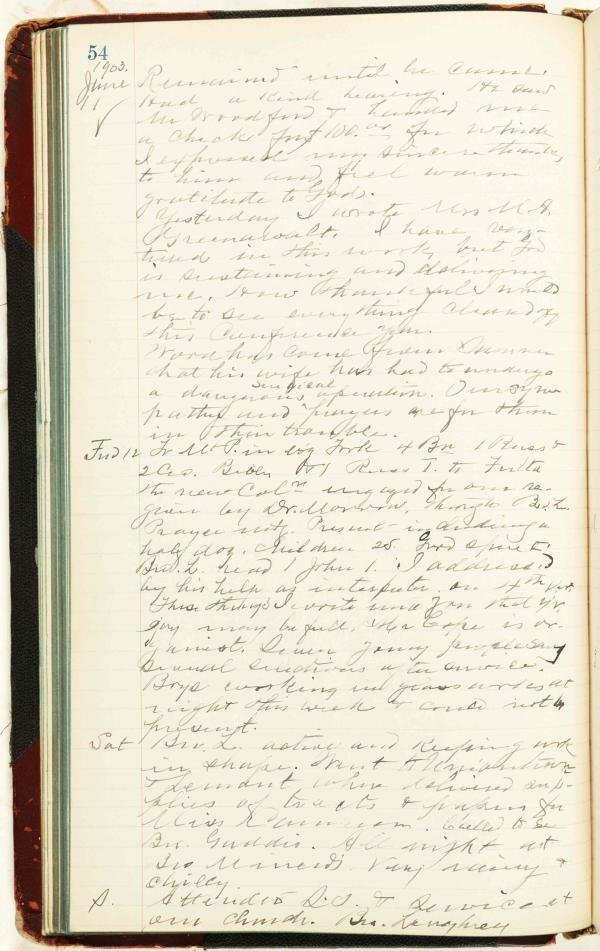 54
1903.
June
11
Remained until he came.
Had a kind hearing. He said
Mr Woodford & handed me
a check for $100.00 for which
I expressed my sincere thanks
to him and feel warm
gratitude to God.
Yesterday I wrote Mrs M.
Greenawalt. I have ven-
tured in this work, but God
is sustaining and delivering
me. How thankful I would
be to see everything cleared off
this Conference Year.
Word has come from
that his wife has had to undergo
a dangerous surgical operation. Our sym-
pathy and prayers are for them
in their trouble.
Frid 12 To McP. in evg Took 4 Bo 1 Russ &
2 Bibles 1 Russ T. to
the new Col engaged for our re-
gion by Dr. Morrow, through Bro. L.
Prayer mtg. Present including a
half doz. children 25. Good
Bro. L. read 1 John 1. I addressed
by his help as interpreter on 4th vs.
These things I wrote unto you that yr
joy may be full. Mr is or-
ganist. Seven young people sang
several selections after service.
Boys working in glass works at
night this week & could not b
present.
Sat Bro. L. active and keeping work
in shape. Went to Uniontown
& Lemont where delivered sup-
plies of tracts & papers for
Miss . Called to see
Bro. Gaddis. All night at
Bro . Very rainy &
chilly.
S. Attended S.S. & Service at
our church. Bro.